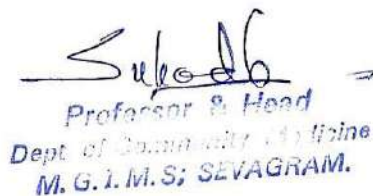 Professor & Head
Dept of Community Medicine
M. G. I. M. S; SEVAGRAM.